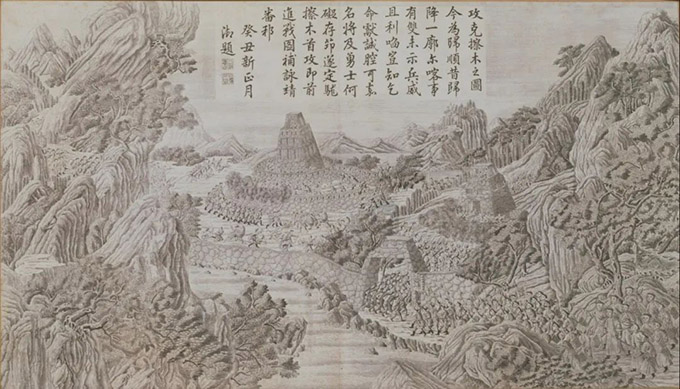 攻克擦木之圖
今為歸順昔歸
降一廓尔喀事
有雙未示兵威
且利啗豈知乞
命獻誠腔可
名將及勇士何
礙存茆遂定駹
擦木首攻即前
進戰圖補詠靖
番邦
癸丑新正月
御題